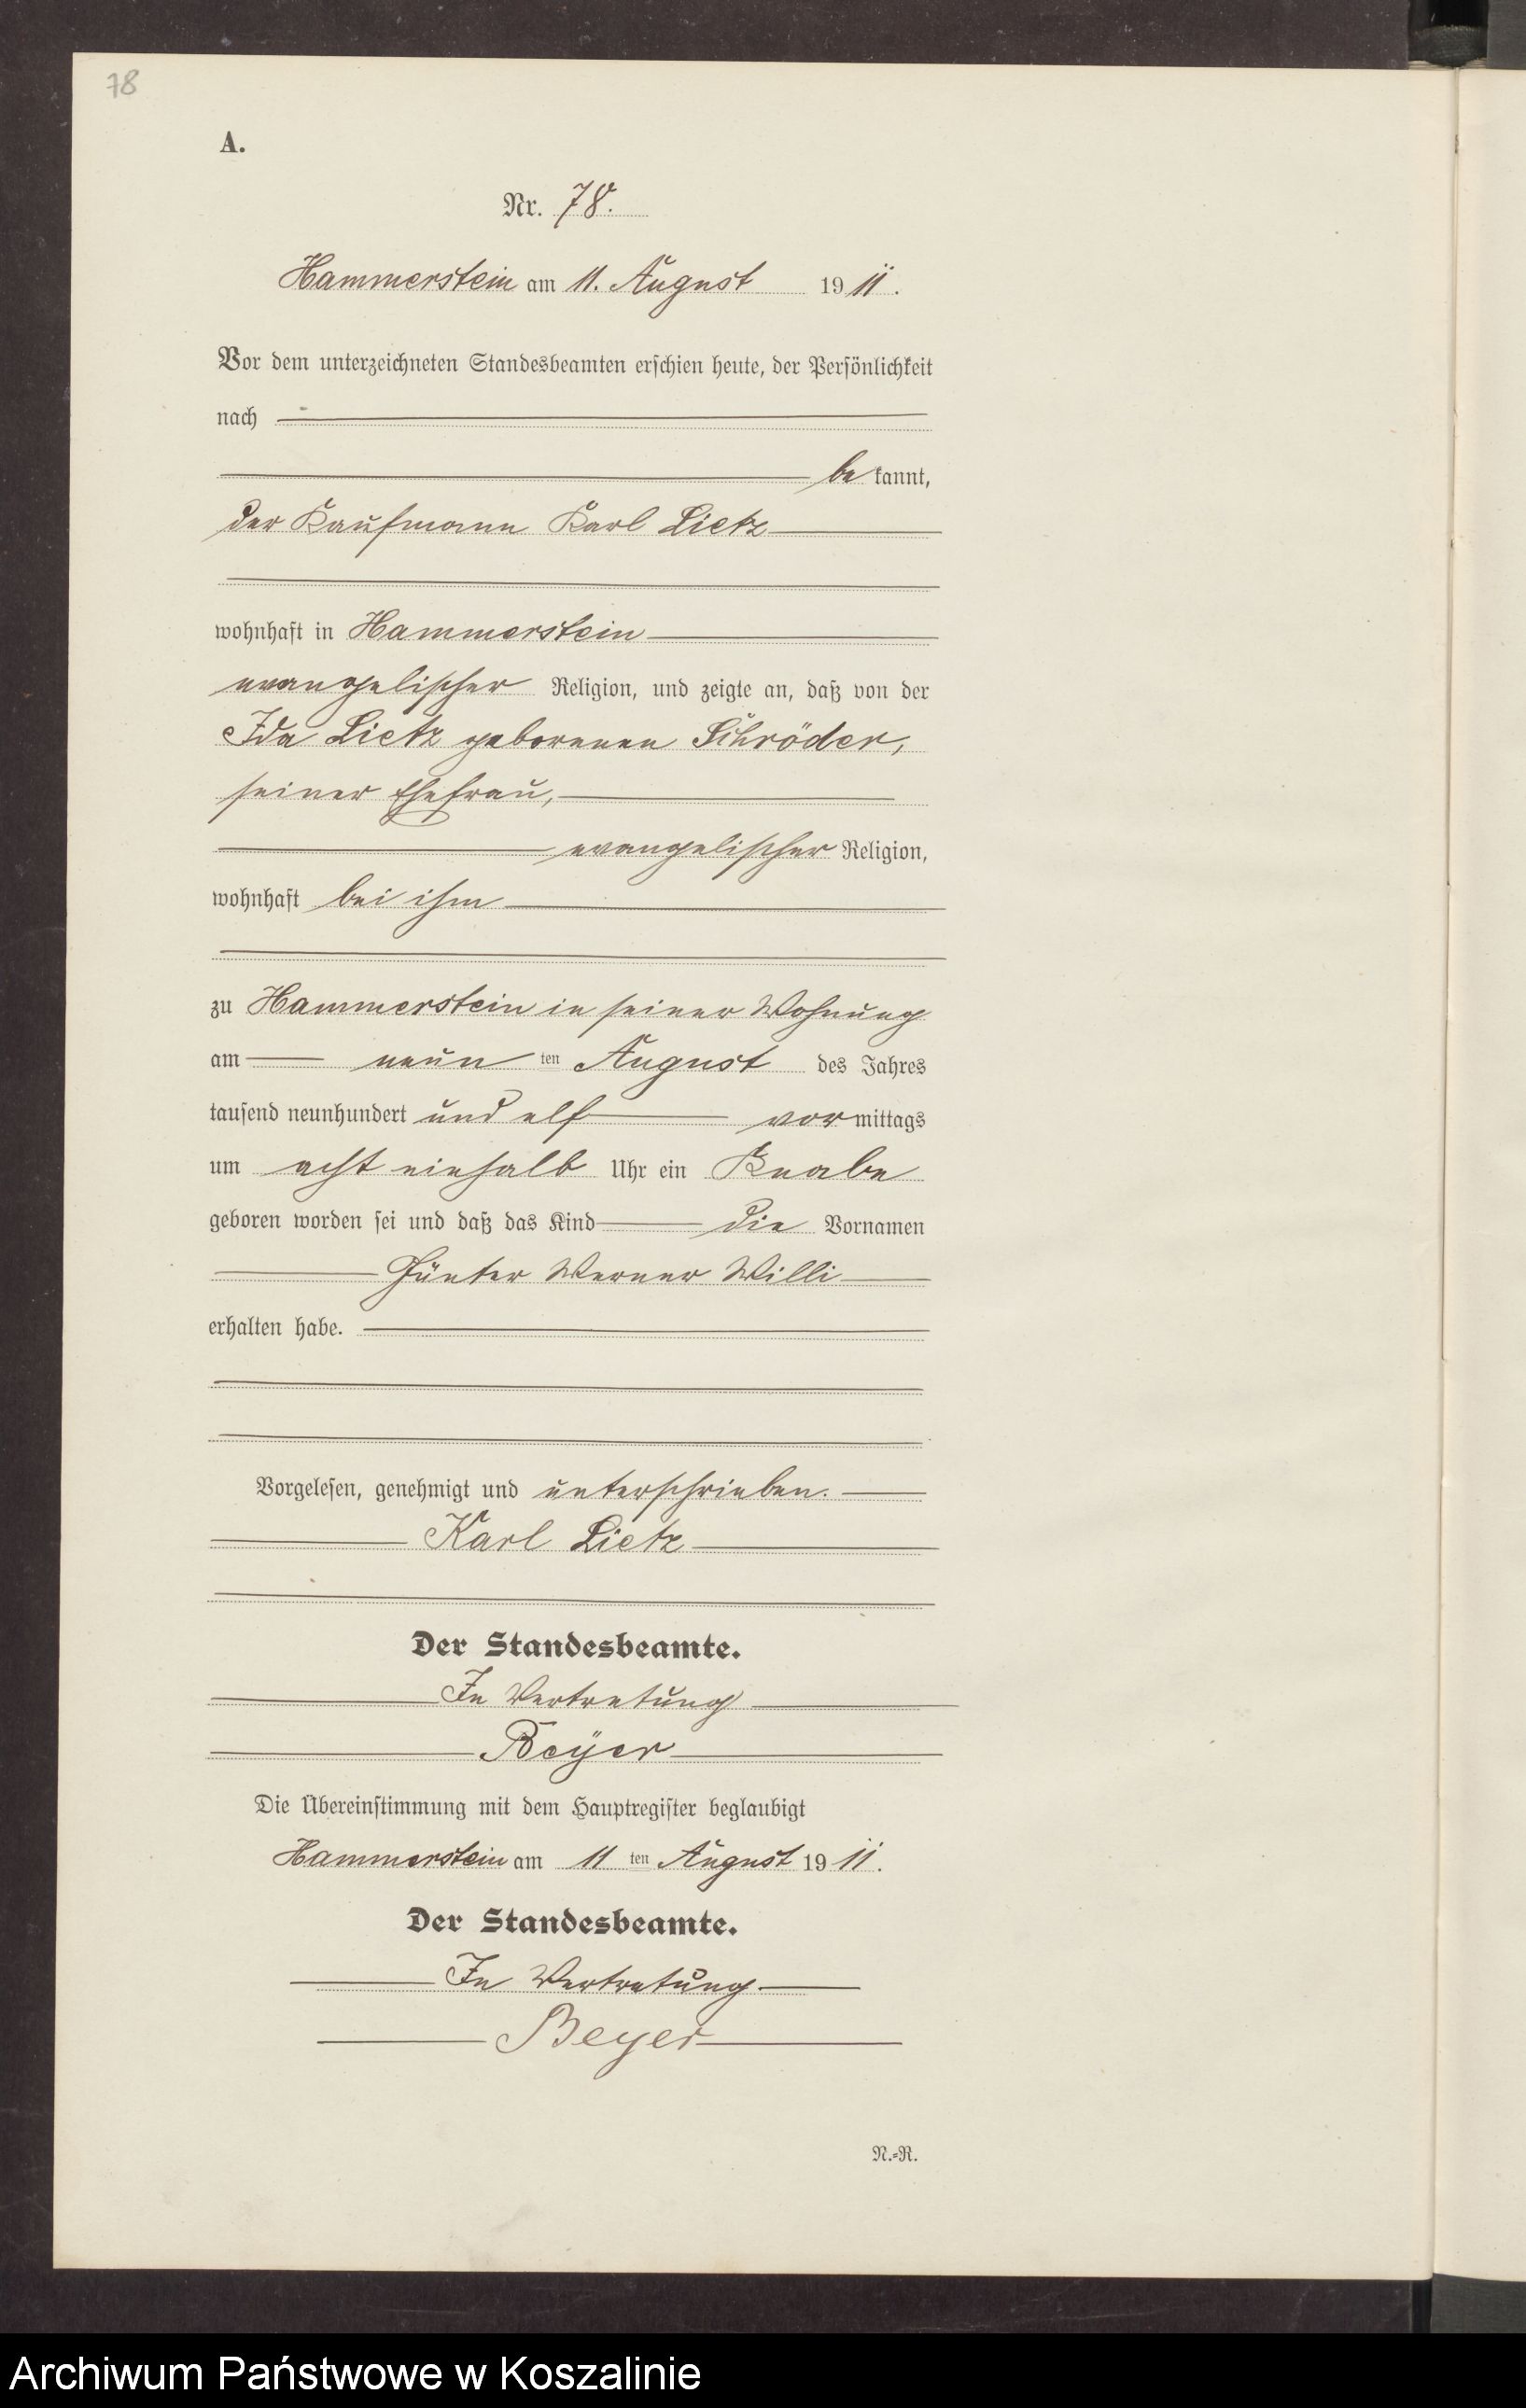 78
A.
Nr. 78.
Hammerstein am 11. August 1911.
Vor dem unterzeichneten Standesbeamten erschien heute, der Persönlichkeit
nach
bekannt,
der Kaufmann Karl Lietz
wohnhaft in Hammerstein
evangelischer Religion, und zeigte an, daß von der
Ida Lietz geborenen Schröder,
seiner Ehefrau,
evangelischer Religion,
wohnhaft bei ihm
zu Hammerstein in seiner Wohnung
am neun ten August des Jahres
tausend neunhundert und elf vormittags
um acht einhalb Uhr ein Knabe
geboren worden sei und daß das Kind die Vornamen
Günter Werner Willi
erhalten habe.
Vorgelesen, genehmigt und unterschrieben.
Karl Lietz
Der Standesbeamte.
In Vertretung
Beyer
Die Übereinstimmung mit dem Hauptregister beglaubigt
Hammerstein am 11 ten August 1911.
Der Standesbeamte.
In Vertretung
Beyer
N.=R.
Archiwum Państwowe w Koszalinie